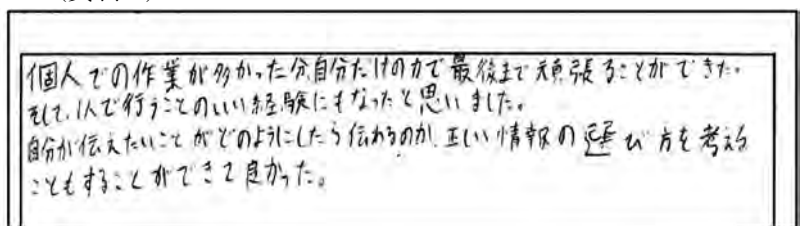 個人での作業が多かった分自分だけの力で最後まで頑張ることができた。
そして、1人で行うことのいい経験にもなったと思いました。
自分が伝えたいことがどのようにしたら伝わるのか、正しい情報の選び方を考える
こともすることができて良かった。